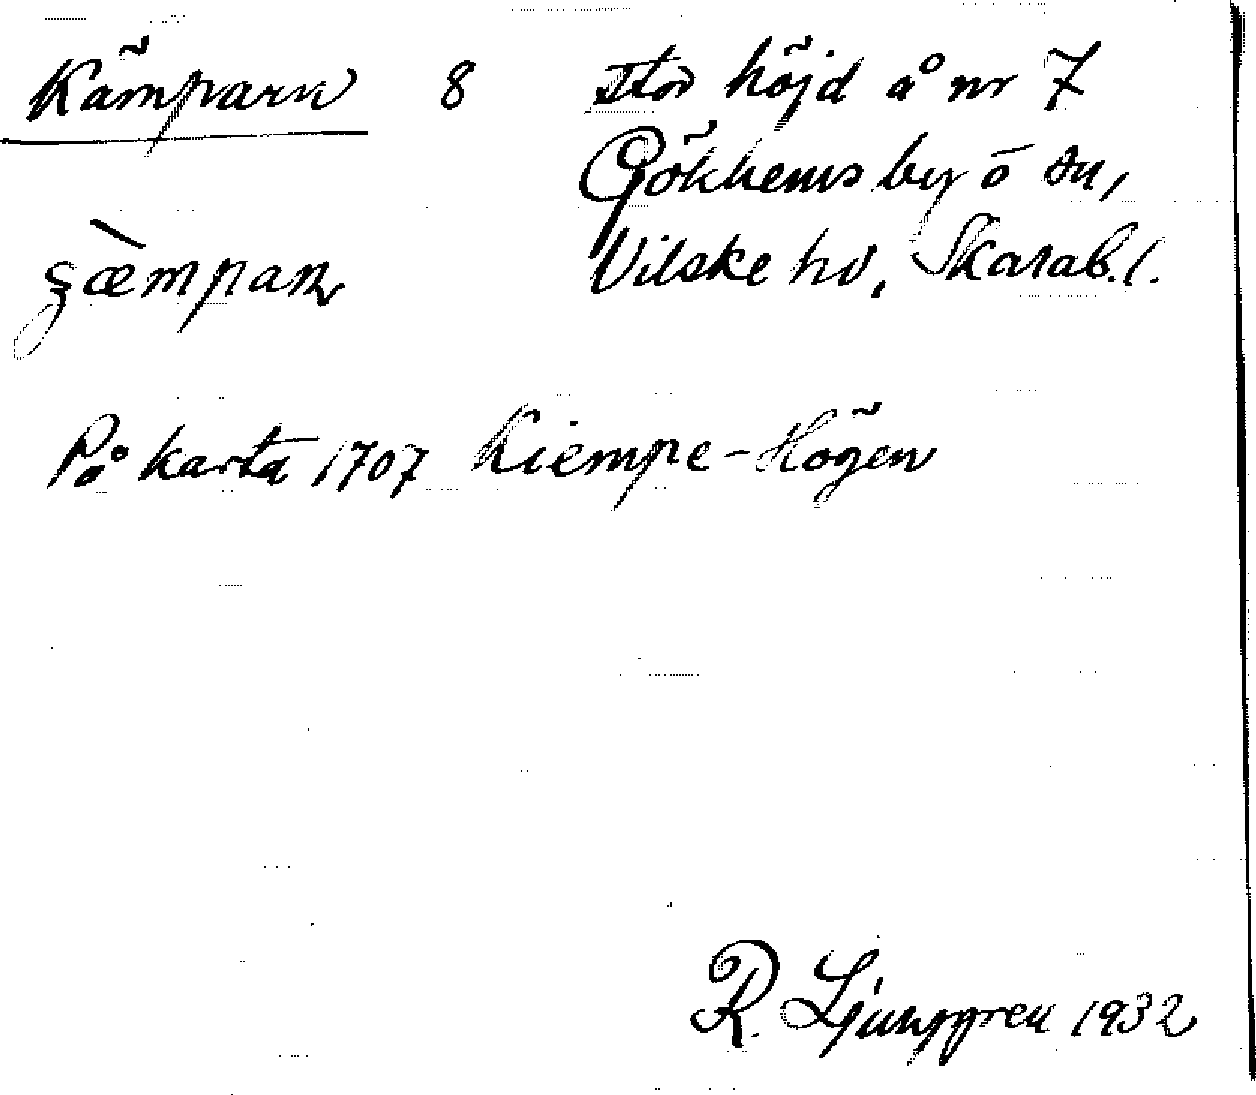 Kämparn 8 Stor höjd å nr 7
Gökhems by o sn,
Vilske hd, Skarab. l.
På karta 1707 Kiempe-Högen
R. Ljunggren 1932